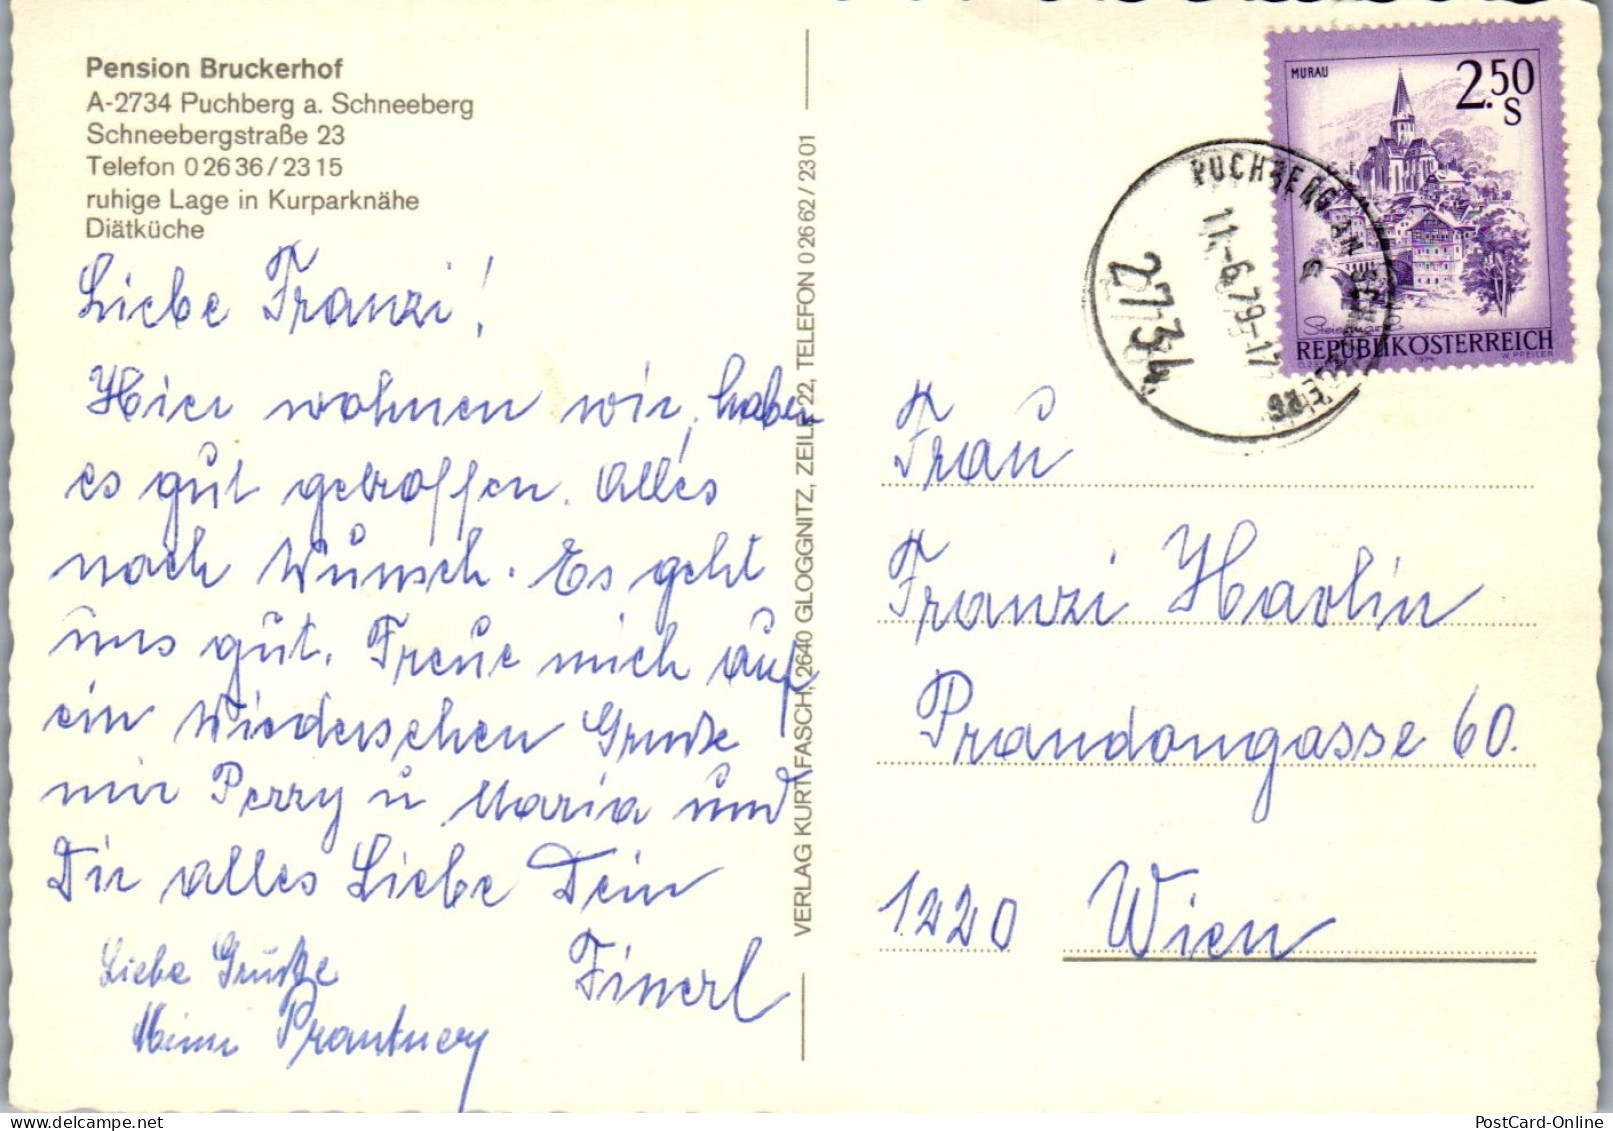 Pension Bruckerhof
A-2734 Puchberg a. Schneeberg
Schneebergstraße 23
Telefon 0 26 36 / 23 15
ruhige Lage in Kurparknähe
Diätküche
Liebe Franzi!
Hier wohnen wir, haben
es gut getroffen. Alles
nach Wunsch. Es geht
uns gut. Freue mich auf
ein Wiedersehen Grüße
mir Perry u Maria und
Dir alles Liebe Dein
Finerl
Liebe Grüße
Mimi Prantner
VERLAG KURT FASCH, 2640 GLOGGNITZ, ZEILE 22, TELEFON 0 26 62 / 23 01
MURAU
2.50
S
Steiermark
REPUBLIK ÖSTERREICH
W. PFEILER
PUCHBERG AN SCHNEEBERG
11.-6.79-17
2734
Frau
Franzi Havlin
Prandaugasse 60.
1220 Wien
PostCard-Online